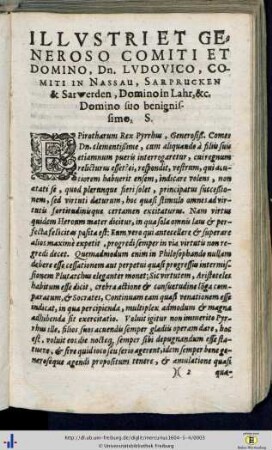 ILLVSTRI ET GE-
NEROSO COMITI ET
DOMINO, Dn. LVDOVICO, CO-
MITI IN NASSAU, SARPRUCKEN
& Sarwerden, Domino in Lahr, &c.
Domino suo benignis-
simo, S.
EPirotharum Rex Pyrrhus, Generosiss. Comes
Dn. clementissime, cum aliquando à filiis suis
etiamnum pueris interrogaretur, cui regnum
relicturus esset? ei, respondit, vestrum, qui acu-
tiorem habuerit ensem, indicare volens, non
ætati se, quod plerunque fieri solet, principatus successio-
nem, sed virtuti daturum, hoc quasi stimulo omnes ad vir-
tutis fortitudinisque certamen excitaturus. Nam virtus
quidem Heroum mater dicitur, in qua sola omnis laus & per-
fecta felicitas posita est: Eum vero qui antecellere & superare
alios maximè expetit, progredi semper in via virtutis non re-
gredi decet. Quemadmodum enim in Philosophando nullam
debere esse cessationem aut perpetui quasi progressus intermis-
sionem Plutarchus eleganter monet: Sic virtutem, Aristoteles
habitum esse dicit, crebra actione & consuetudine
comparatum, & Socrates, Continuam eam quasi venationem esse
indicat, in qua percipienda, multiplex admodum & magna
adhibenda sit exercitatio. Voluit igitur non immerito Pyr-
rhus ille, filios suos acuendis semper gladiis operam dare, hoc
est, voluit eos die noctuq, semper sibi depugnandum esse sta-
tuere, & sive quid ociosi seu serio agerent, idem semper bene ge-
nerosequè agendi propositum tenere, & æmulatione quasi
)( 2 qua-
http://dl.ub.uni-freiburg.de/diglit/mercurius1604-5-4/0003
© Universitätsbibliothek Freiburg